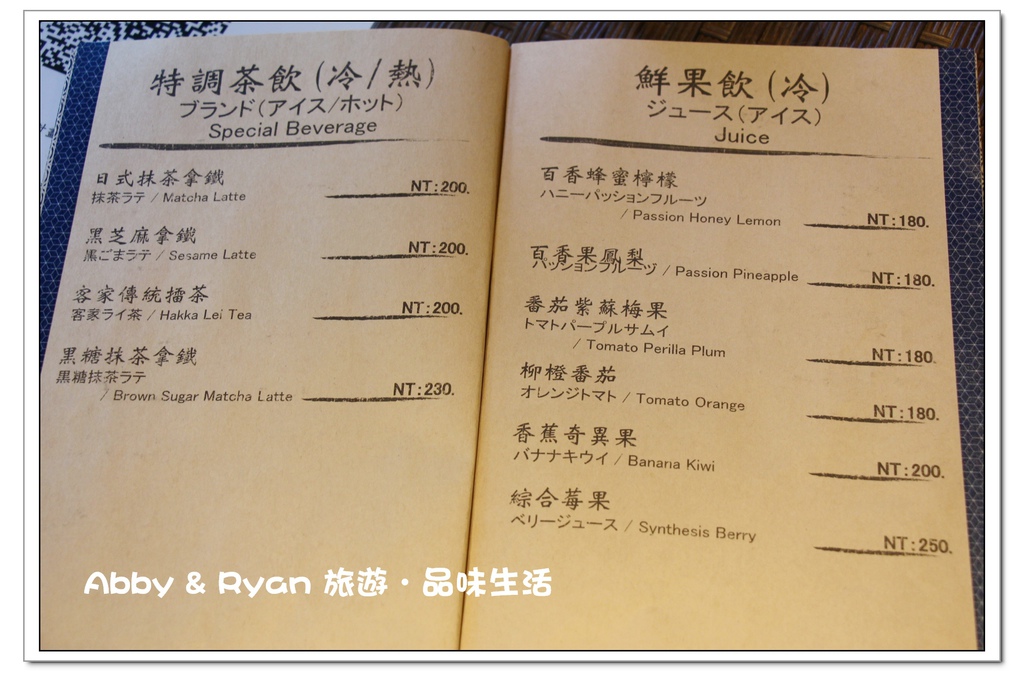 特調茶飲(冷/熱)
ブランド(アイス/ホット)
Special Beverage
日式抹茶拿鐵
抹茶ラテ / Matcha Latte
NT:200.
黑芝麻拿鐵
黒ごまラテ / Sesame Latte
NT:200.
客家傳統擂茶
客家ライ茶 / Hakka Lei Tea
NT:200.
黑糖抹茶拿鐵
黒糖抹茶ラテ
/ Brown Sugar Matcha Latte
NT:230.
鮮果飲(冷)
ジュース(アイス)
Juice
百香蜂蜜檸檬
ハニーパッションフルーツ
/ Passion Honey Lemon
NT:180.
百香果鳳梨
パッションフルーツ / Passion Pineapple
NT:180.
番茄紫蘇梅果
トマトパープルサムイ
/ Tomato Perilla Plum
NT:180.
柳橙番茄
オレンジトマト / Tomato Orange
NT:180.
香蕉奇異果
バナナキウイ / Banana Kiwi
NT:200.
綜合莓果
ベリージュース / Synthesis Berry
NT:250.
Abby & Ryan 旅遊・品味生活